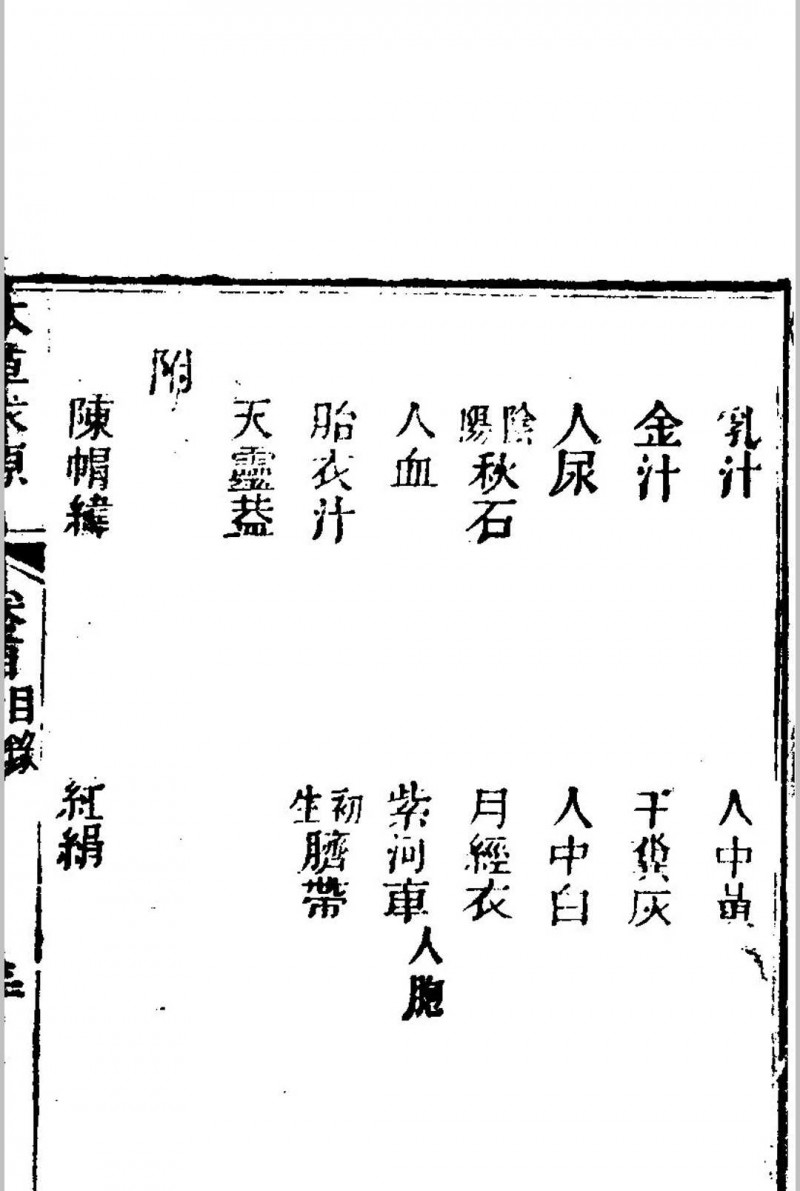 乳汁 人中黄
金汁 干糞灰
人尿 人中白
陰陽秋石 月經衣
人血 紫河車人胞
胎衣汁 初生臍帶
天靈葢
附
陳帽緯 紅絹
本草 原 卷首目錄